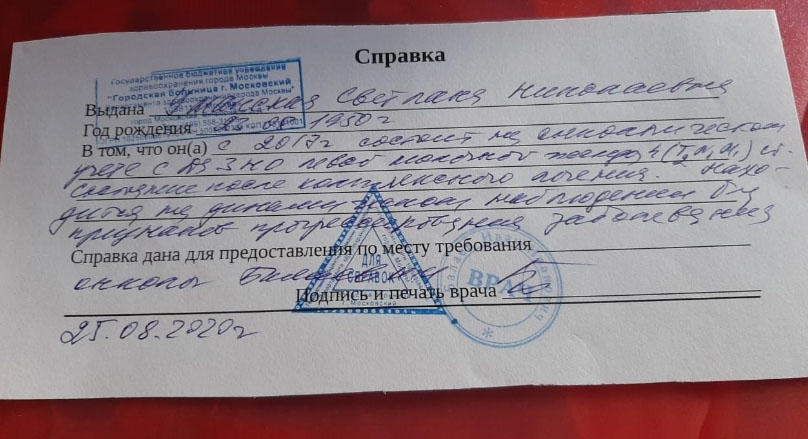 Справка
Государственное бюджетное учреждение
здравоохранения города Москвы
"Городская больница г. Московский
Департамента здравоохранения города Москвы"
Выдана Светлана Николаевна
Год рождения 1950г
В том, что он(а) с 2017г состоит на онкологическом
учете с ДЗ ЗНО левой молочной железы
Состояние после комплексного лечения. Нахо-
дится на динамическом наблюдении
признаков прогрессирования заболевания
Справка дана для предоставления по месту требования
онколог
ДЛЯ
СПРАВОК
г. Московский
ВРАЧ
Подпись и печать врача
25.08.2020г